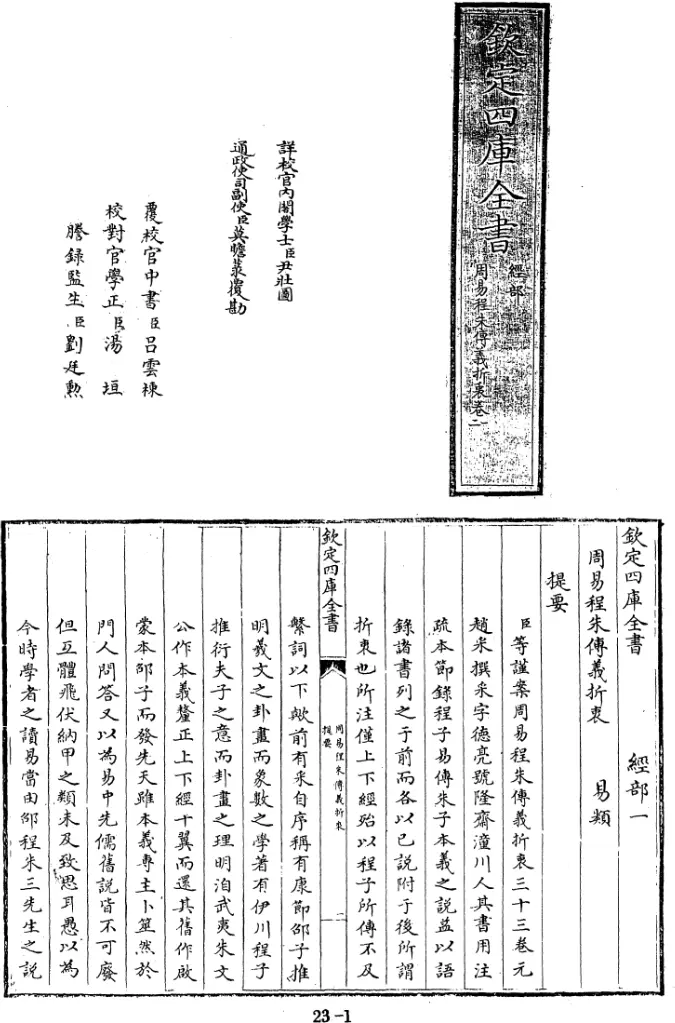 欽定四庫全書
經部
周易程朱傳義折衷卷二
詳校官內閣學士臣尹壯圖
通政使司副使臣莫瞻菉覆勘
覆校官中書臣呂雲棟
校對官學正臣湯垣
謄錄監生臣劉廷勲
欽定四庫全書 經部一
周易程朱傳義折衷 易類
提要
臣等謹案周易程朱傳義折衷三十三卷元
趙采撰采字德亮號隆齋潼川人其書用注
疏本節錄程子易傳朱子本義之說益以語
錄諸書列之于前而各以已說附于後所謂
折衷也所注僅上下經殆以程子所傳不及
欽定四庫全書
周易程朱傳義折衷
提要
二
繫詞以下歟前有采自序稱有康節邵子推
明義文之卦畫而象數之學著有伊川程子
推衍夫子之意而卦畫之理明洎武夷朱文
公作本義釐正上下經十翼而還其舊作啟
蒙本邵子而發先天雖本義專主卜筮然於
門人問答又以為易中先儒舊說皆不可廢
但互體飛伏納甲之類未及致思耳愚以為
今時學者之讀易當由邵程朱三先生之說
23-1